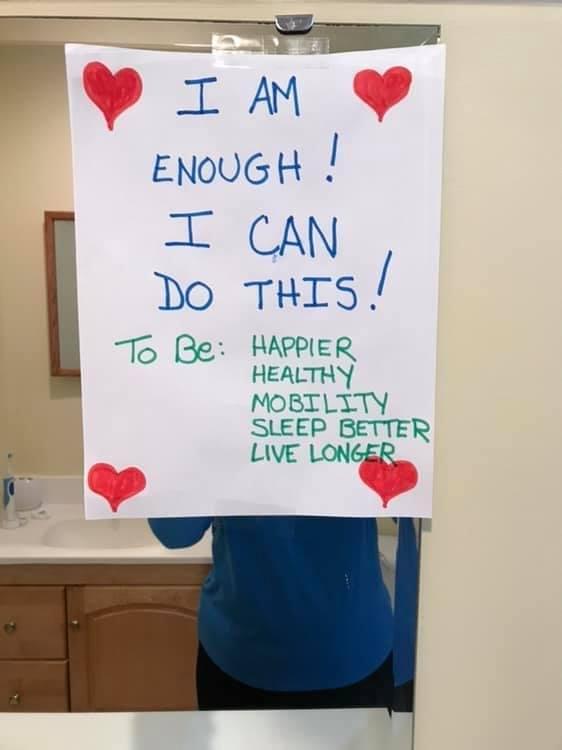 I AM
ENOUGH!
I CAN
DO THIS!
To Be: HAPPIER
HEALTHY
MOBILITY
SLEEP BETTER
LIVE LONGER